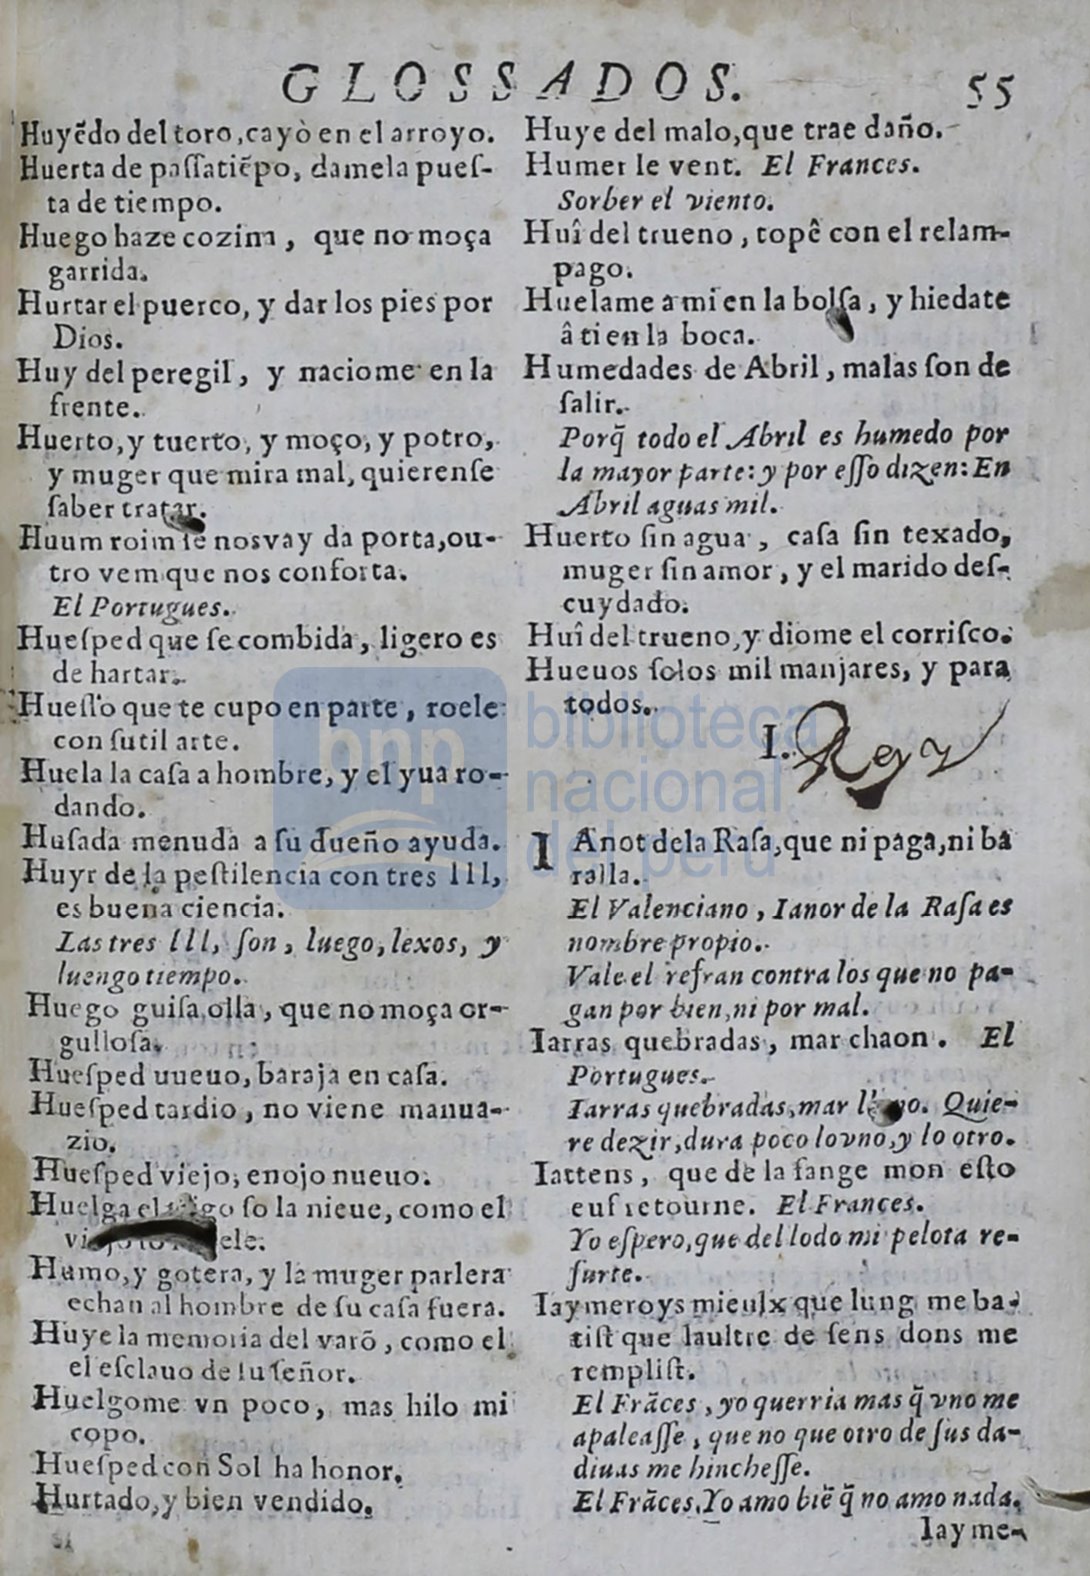 GLOSSADOS. 55
Huyẽdo del toro, cayò en el arroyo.
Huerta de paſſatiẽpo, damela pueſ-
ta de tiempo.
Huego haze cozina, que no moça
garrida.
Hurtar el puerco, y dar los pies por
Dios.
Huy del peregil, y naciome en la
frente.
Huerto, y tuerto, y moço, y potro,
y muger que mira mal, quierenſe
ſaber tratar.
Huum roim ſe nos vay da porta, ou-
tro vem que nos conforta.
El Portugues.
Hueſped que ſe combida, ligero es
de hartar.
Hueſſo que te cupo en parte, roele
con ſutil arte.
Huela la caſa a hombre, y el yua ro-
dando.
Huſada menuda a ſu dueño ayuda.
Huyr de la peſtilencia con tres lll,
es buena ciencia.
Las tres lll, ſon, luego, lexos, y
luengo tiempo.
Huego guiſa olla, que no moça or-
gulloſa.
Hueſped uueuo, baraja en caſa.
Hueſped tardio, no viene manua-
zio.
Hueſped viejo, enojo nueuo.
Huelga el ſo la nieue, como el
Humo, y gotera, y la muger parlera
echan al hombre de ſu caſa fuera.
Huye la memoria del varõ, como el
el eſclauo de ſu ſeñor.
Huelgome vn poco, mas hilo mi
copo.
Hueſped con Sol ha honor.
Hurtado, y bien vendido.
Huye del malo, que trae daño.
Humer le vent. El Frances.
Sorber el viento.
Huî del trueno, topê con el relam-
pago.
Huelame a mi en la bolſa, y hiedate
â ti en la boca.
Humedades de Abril, malas ſon de
ſalir.
Porq̃ todo el Abril es humedo por
la mayor parte: y por eſſo dizen: En
Abril aguas mil.
Huerto ſin agua, caſa ſin texado,
muger ſin amor, y el marido deſ-
cuydado.
Huî del trueno, y diome el corriſco.
Hueuos ſolos mil manjares, y para
todos.
I.
IAnot dela Raſa, que ni paga, ni ba
ralla.
El Valenciano, Ianot de la Raſa es
nombre propio.
Vale el refran contra los que no pa-
gan por bien, ni por mal.
Iarras quebradas, mar chaon. El
Portugues.
Iarras quebradas, mar Quie-
re dezir, dura poco lo vno, y lo otro.
Iattens, que de la fange mon eſto
euf retourne. El Frances.
Yo eſpero, que del lodo mi pelota re-
ſurte.
Iaymeroys mieulx que lung me ba-
tiſt que laultre de ſens dons me
rempliſt.
El Frãces, yo querria mas q̃ vno me
apaleaſſe, que no que otro de ſus da-
diuas me hincheſſe.
El Frãces. Yo amo biẽ q̃ no amo nada.
Iay me-
bnp biblioteca
nacional
del perú